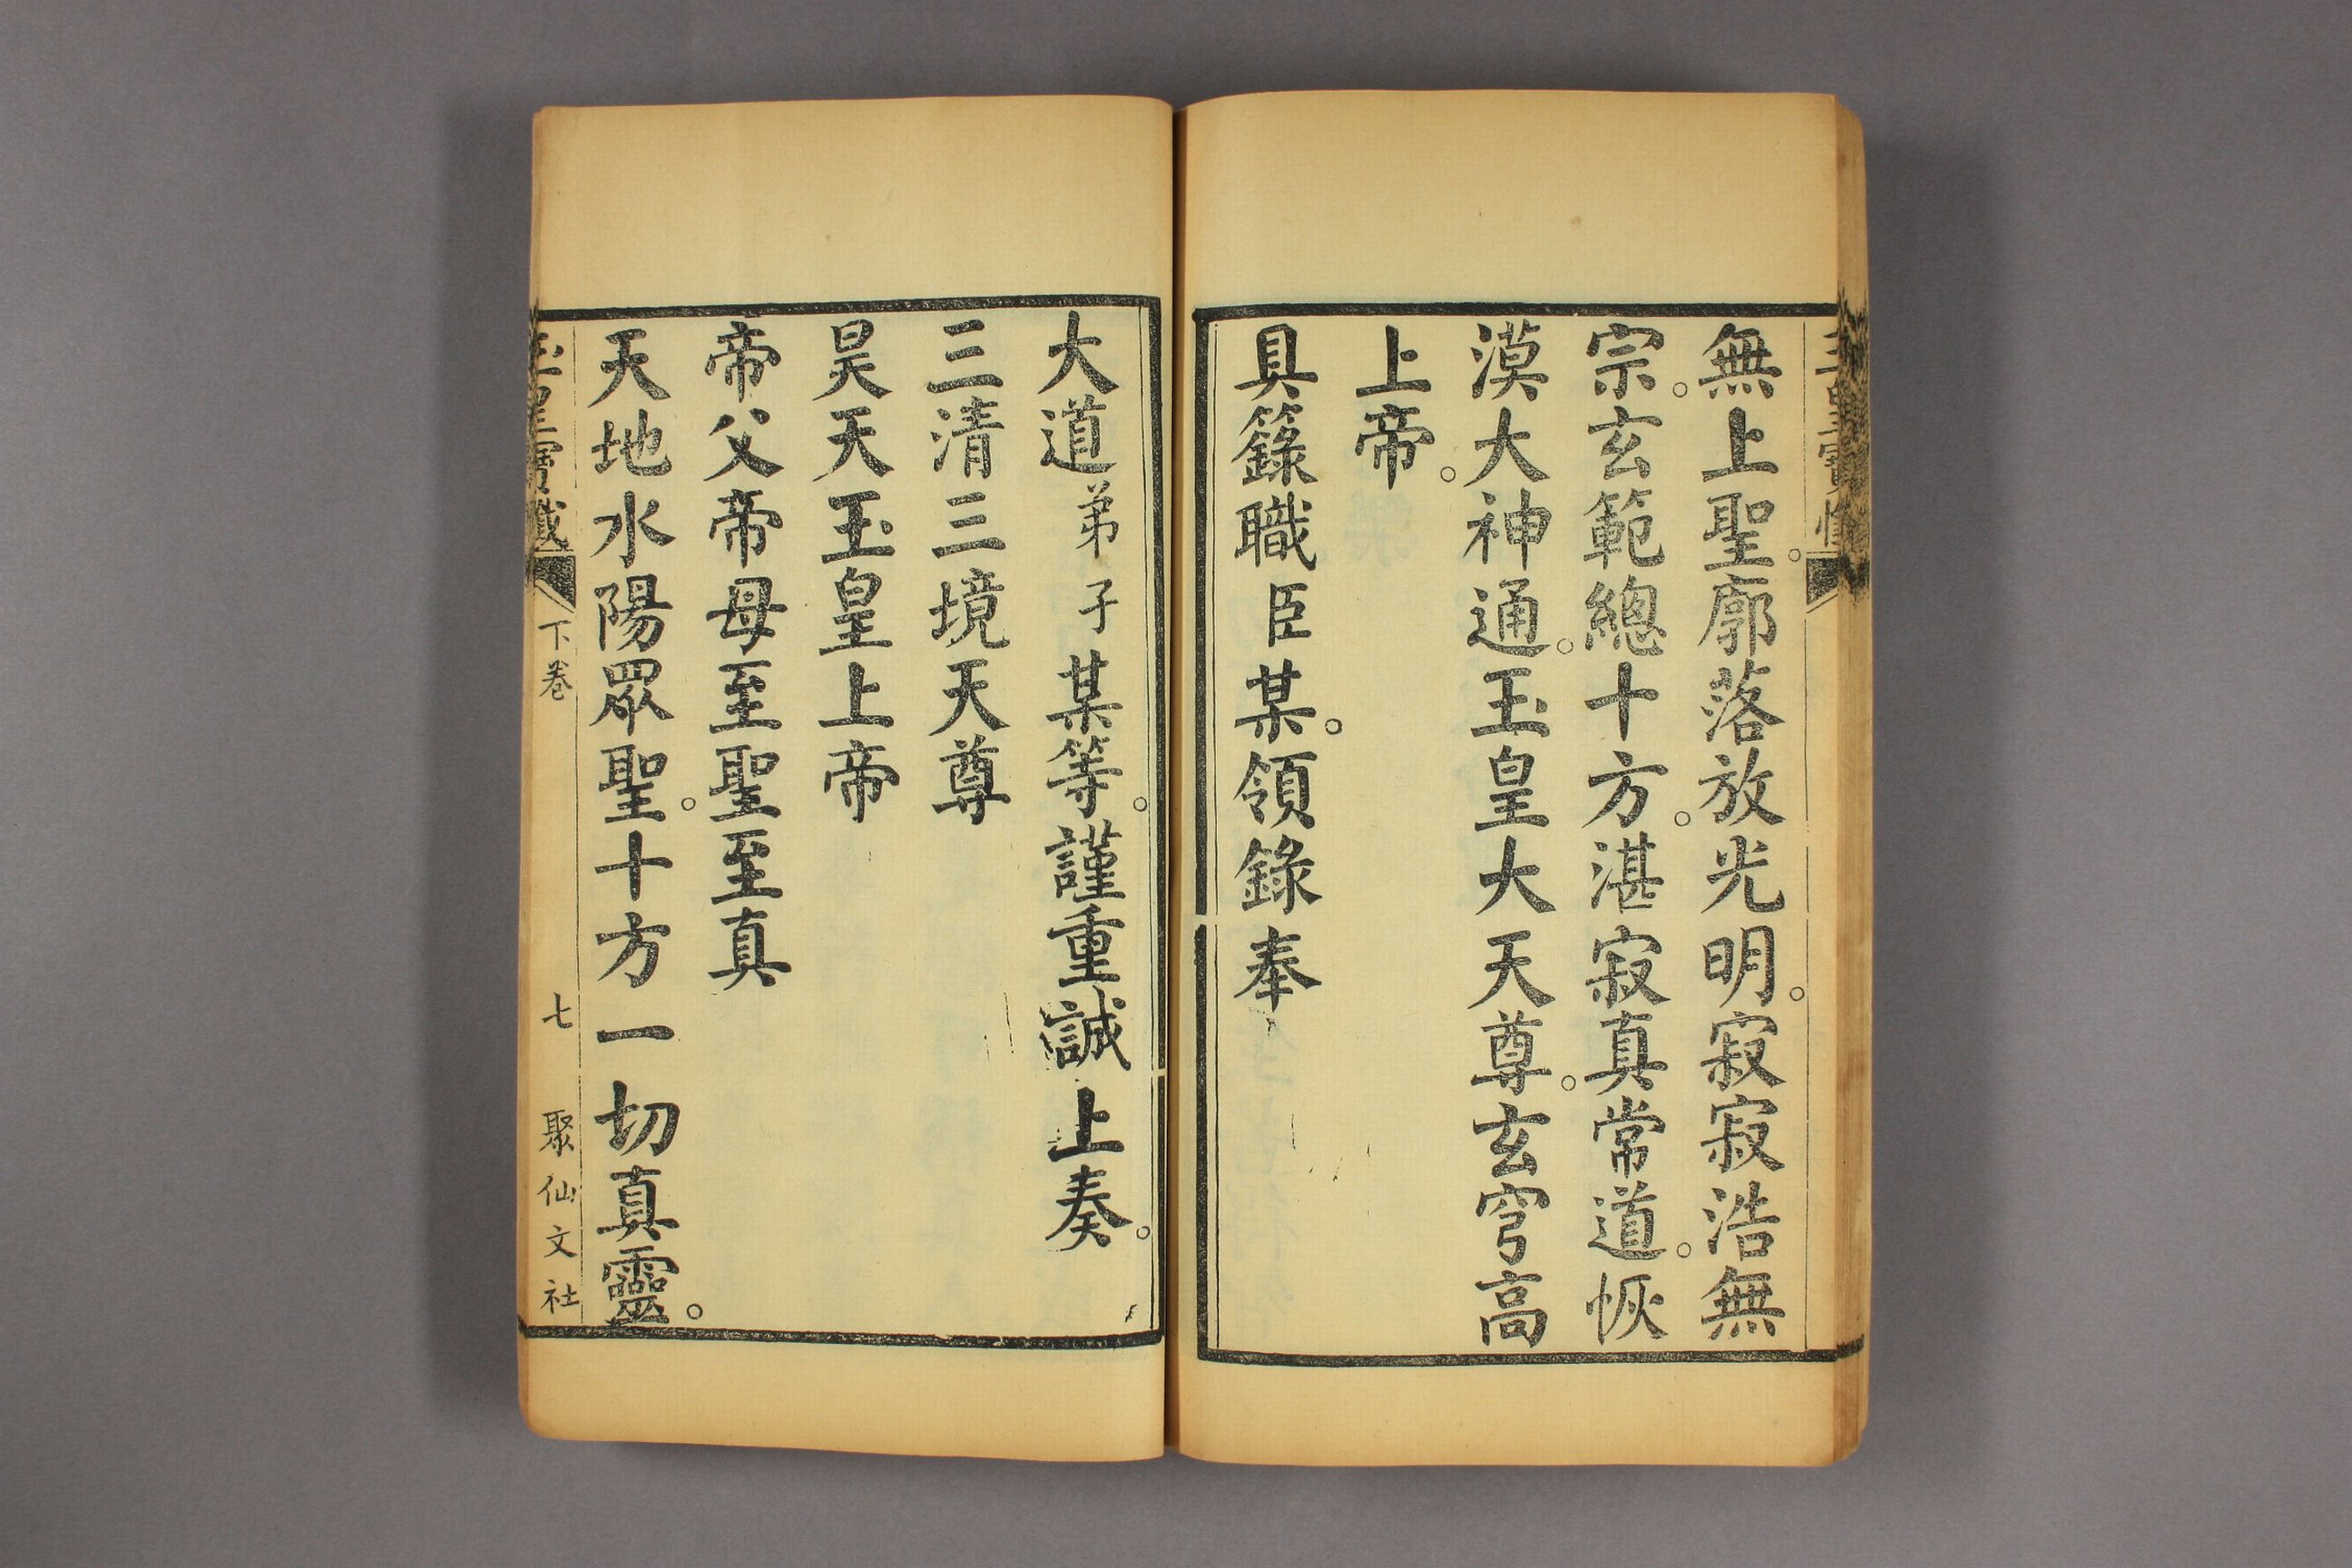 無上聖。廓落放光明。寂寂浩無
宗。玄範總十方。湛寂真常道。恢
漠大神通。玉皇大天尊。玄穹高
上帝。
具籙職臣某。領錄奉
大道弟子某等。謹重誠上奏。
三清三境天尊
昊天玉皇上帝
帝父帝母至聖至真
天地水陽眾聖。十方一切真靈。
下卷 七 聚仙文社